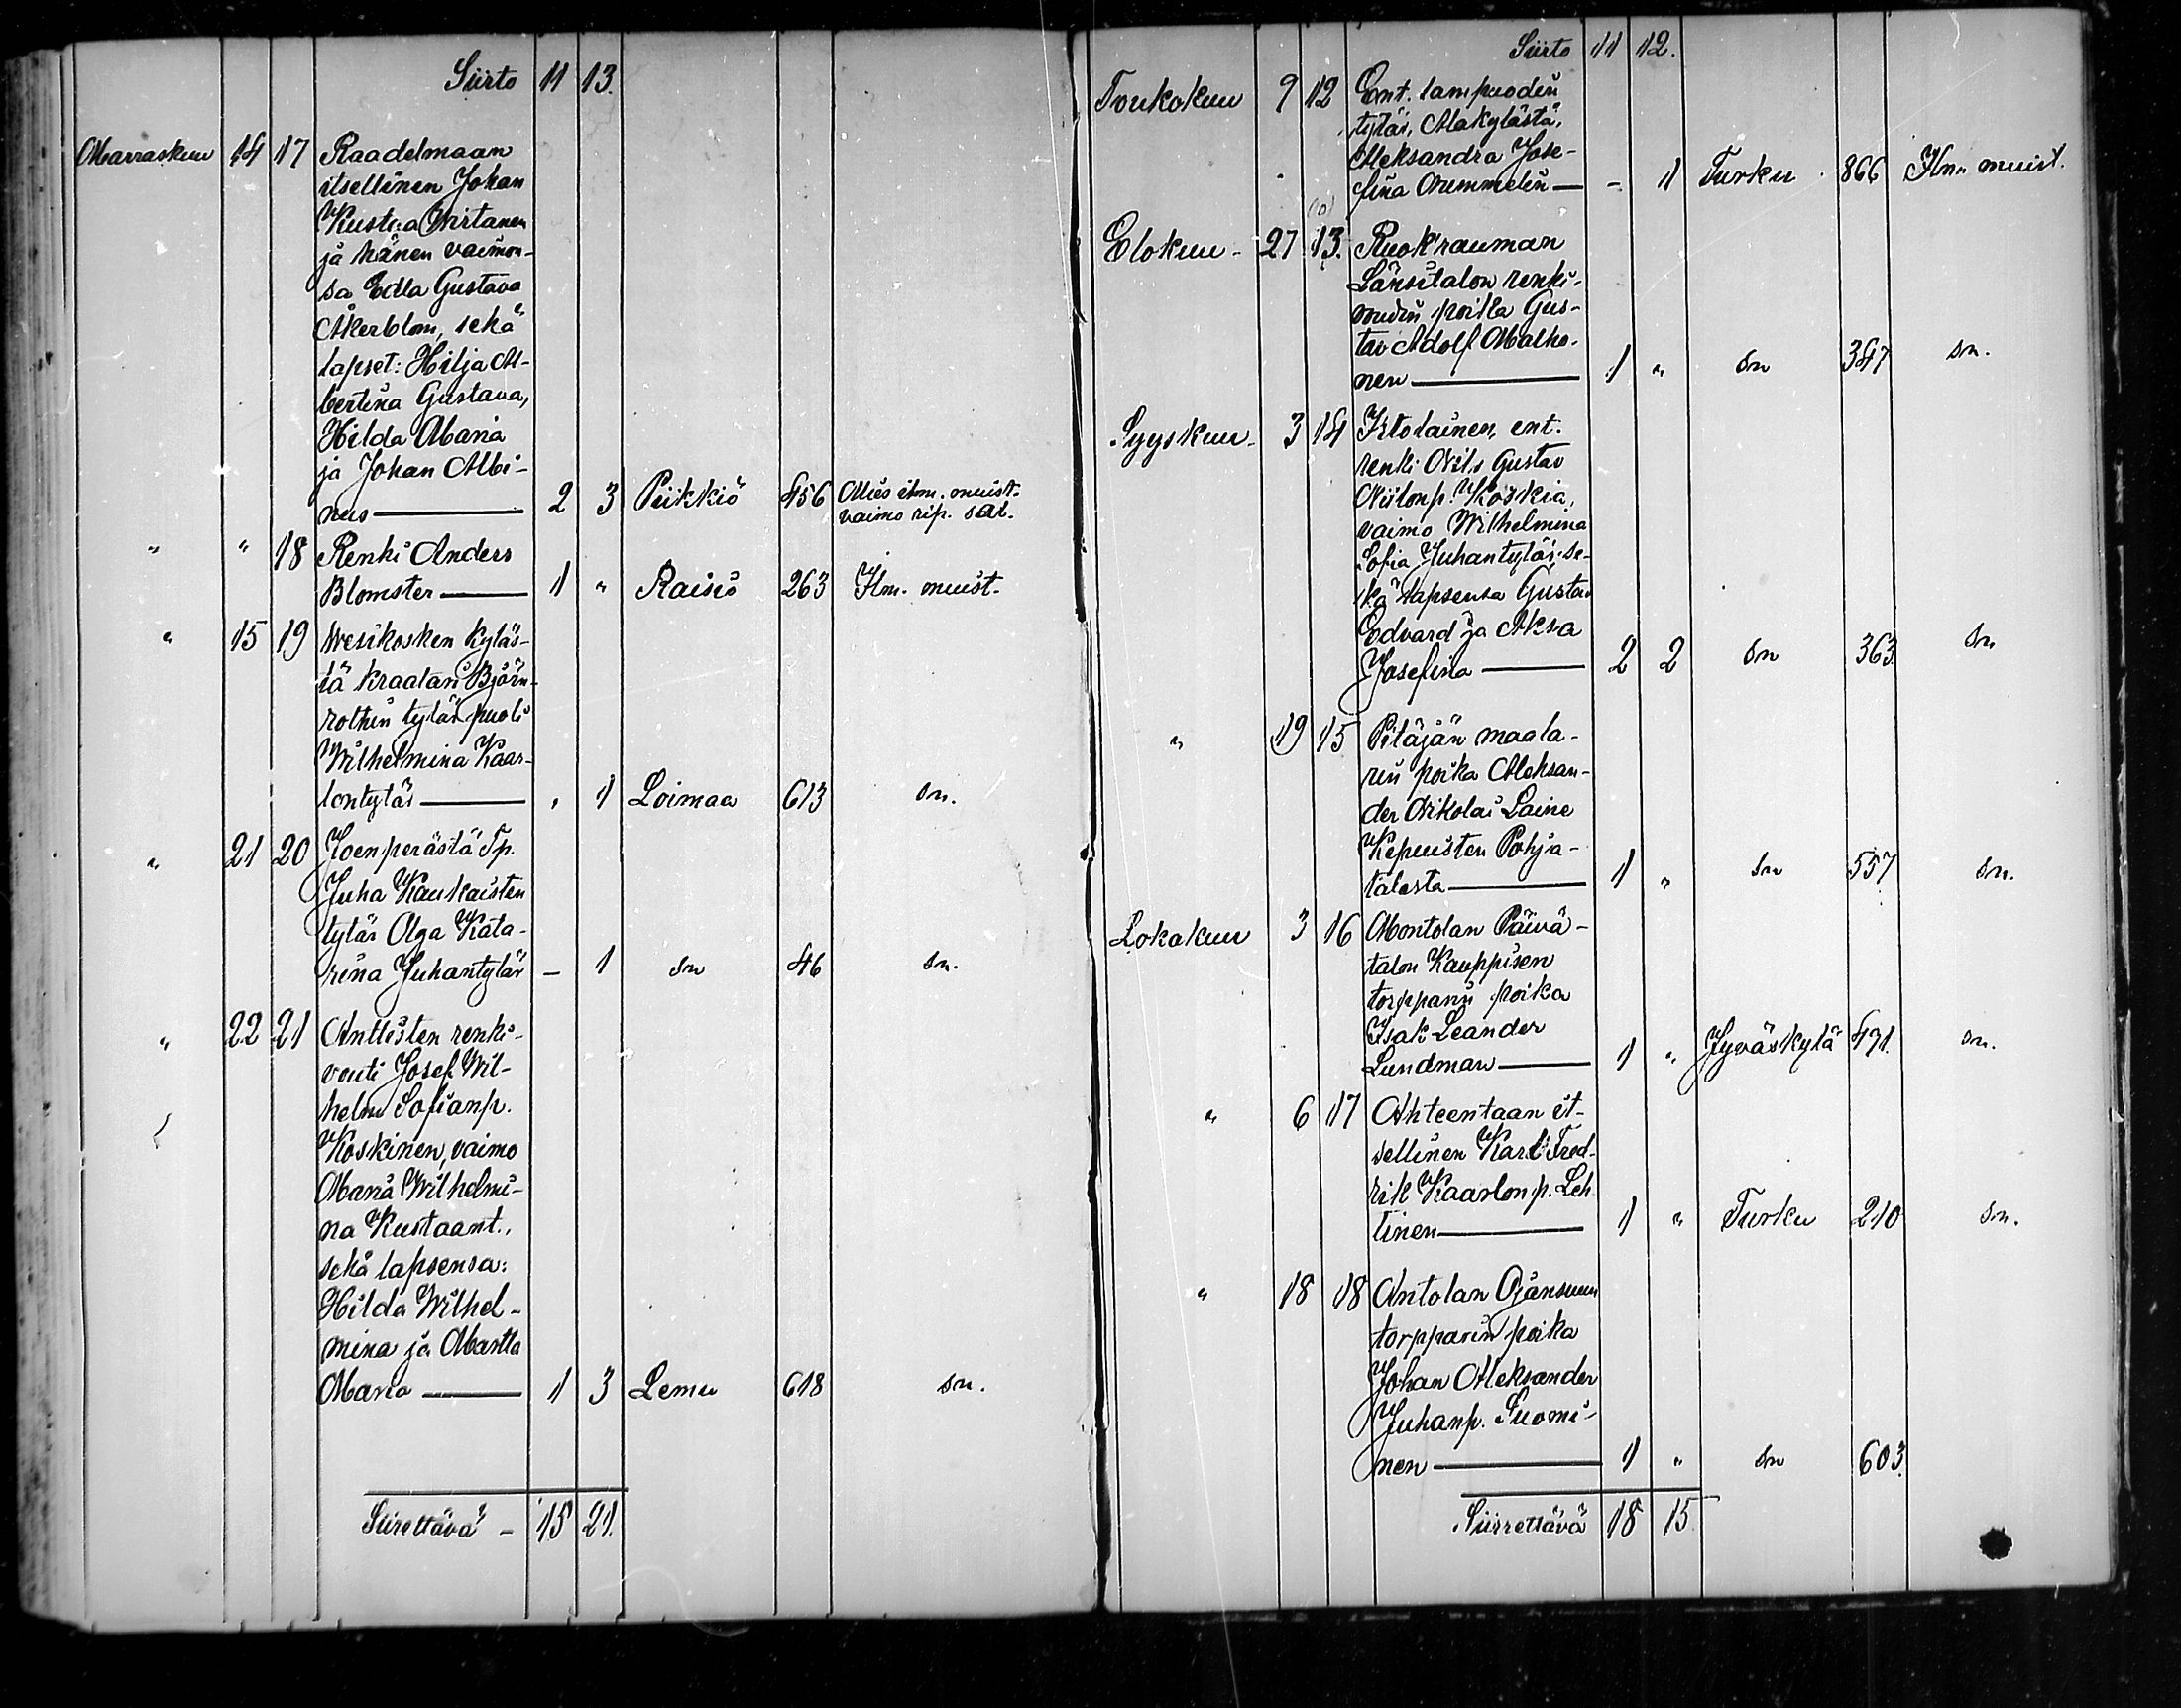 Siirto 11 13.
Marraskuu 14 17 Raadelmaan
itsellinen Johan
Kustaa Virtanen
ja hänen vaimon-
sa Edla Gustava
Åkerblom, sekä
lapset: Hilja Al-
bertina Gustava,
Hilda Maria
ja Johan Albi-
nus — 2 3 Piikkiö 456 Mies ilm. muist.
vaimo rip. sal.
" " 18 Renki Anders
Blomster — 1 " Raisio 263 Ilm. muist.
" 15 19 Wesikosken kyläs-
tä kraatari Björn-
rothin tytärpuoli
Wilhelmina Kaar-
lontytär — " 1 Loimaa 613 sn.
" 21 20 Joenperästä Tp.
Juha Kaukaisten
tytär Olga Kata-
rina Juhantytär — 1 sn 46 sn.
" 22 21 Anttisten renki-
vouti Josef Wil-
helm Sofianp.
Koskinen, vaimo
Maria Wilhelmi-
na Kustaant.,
sekä lapsensa:
Hilda Wilhel-
mina ja Martta
Maria — 1 3 Lemu 618 sn.
Siirettävä - 15 21.
Siirto 11 12.
Toukokuu 9 12 Ent. lampuodin
tytär, Alakylästä,
Aleksandra Jose-
fina Nummelin — - 1 Turku 866 Ilm. muist.
Elokuu - 27 13. Ruokrauman
Länsitalon renki-
vudin poika Gus-
tav Adolf Malho-
nen — 1 " sn 347 sn.
Syyskuu - 3 14 Istolainen, ent.
renki Nils Gustav
Niilonp. Koskia,
vaimo Wilhelmina
Sofia Juhantytär, se-
kä lapsensa Gustav
Edvard ja Aksa
Josefina — 2 2 sn 363. sn
" 19 15 Pitäjän maala-
rin poika Aleksan-
der Nikolai Laine
Kepuisten Pohja-
talosta — 1 " sn 557 sn.
Lokakuu 3 16 Montolan Päivä-
talon Kauppisen
torpparin poika
Isak Leander
Lundman — 1 " Jyväskylä 471. sn.
" 6 17 Ahteentaan it-
sellinen Karl Fred-
rik Kaarlonp. Leh
tinen — 1 " Turku 210 sn.
" 18 18 Antolan Ojansuun
torpparin poika
Johan Aleksander
Juhanp. Suomi-
nen — 1 " sn 603.
Siirrettävä 18 15